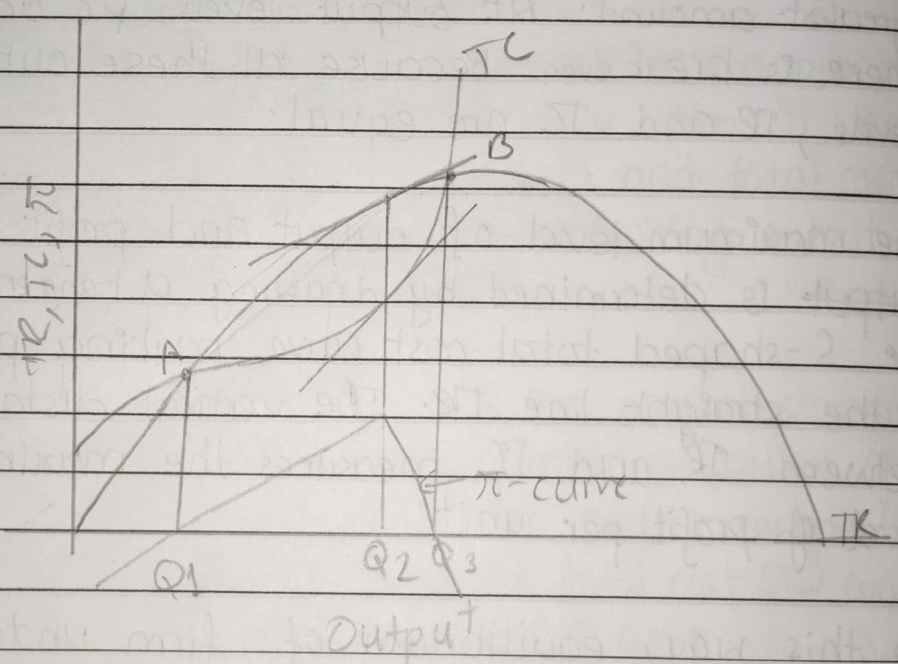 TC
B
TR, TC, π
A
π-curve
TR
Q1
Q2
Q3
Output